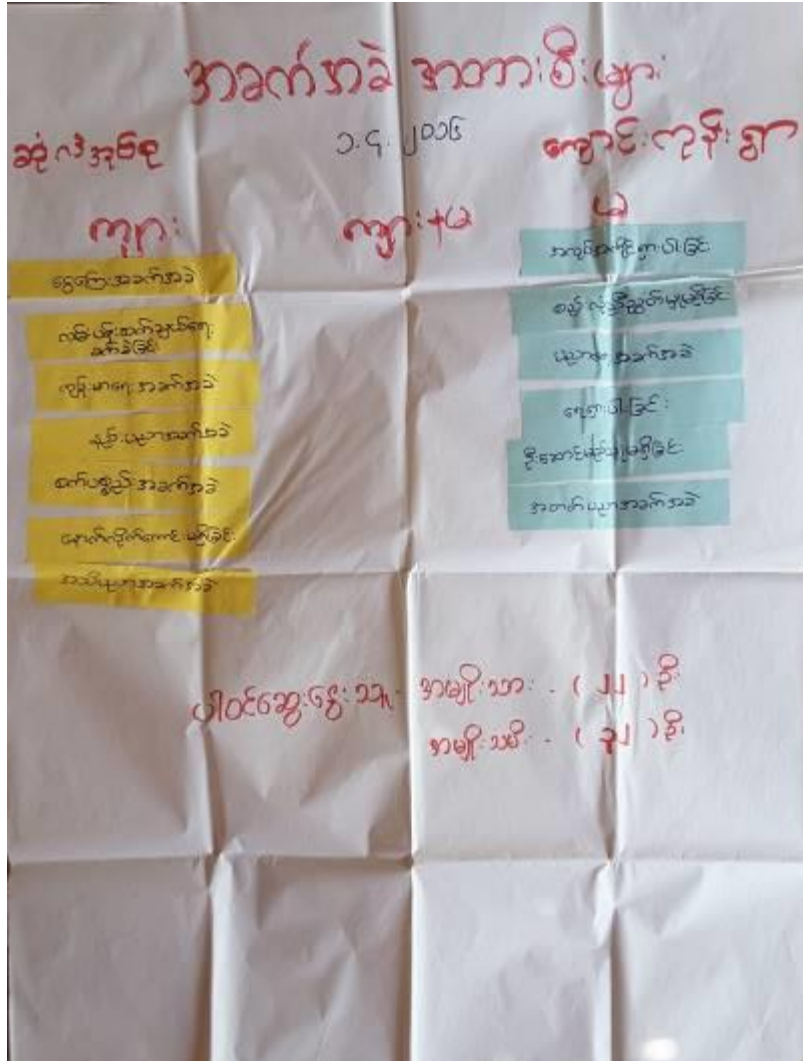 အခက်အခဲ အတားစီးများ
ဆုံလဒဲအုပ်စု
၁.၄.၂၀၁၆
ကျောင်းကုန်းရွာ
ကျား
ကျား+မ
မ
ငွေကြေးအခက်အခဲ
လမ်းပန်းဆက်သွယ်ရေး
ခက်ခဲခြင်း
ကျန်းမာရေးအခက်အခဲ
နည်းပညာအခက်အခဲ
စက်ပစ္စည်းအခက်အခဲ
နောက်လိုက်ကောင်းမရှိခြင်း
အသိပညာအခက်အခဲ
အလုပ်အကိုင်ရှားပါးခြင်း
စည်းလုံးညီညွတ်မှုမရှိခြင်း
ပညာရေးအခက်အခဲ
ရေရှားပါးခြင်း
ဦးဆောင်မည့်သူမရှိခြင်း
အတတ်ပညာအခက်အခဲ
ပါဝင်ဆွေးနွေးသူ - အမျိုးသား - ( ၂၂ ) ဦး
အမျိုးသမီး - ( ၃၂ ) ဦး